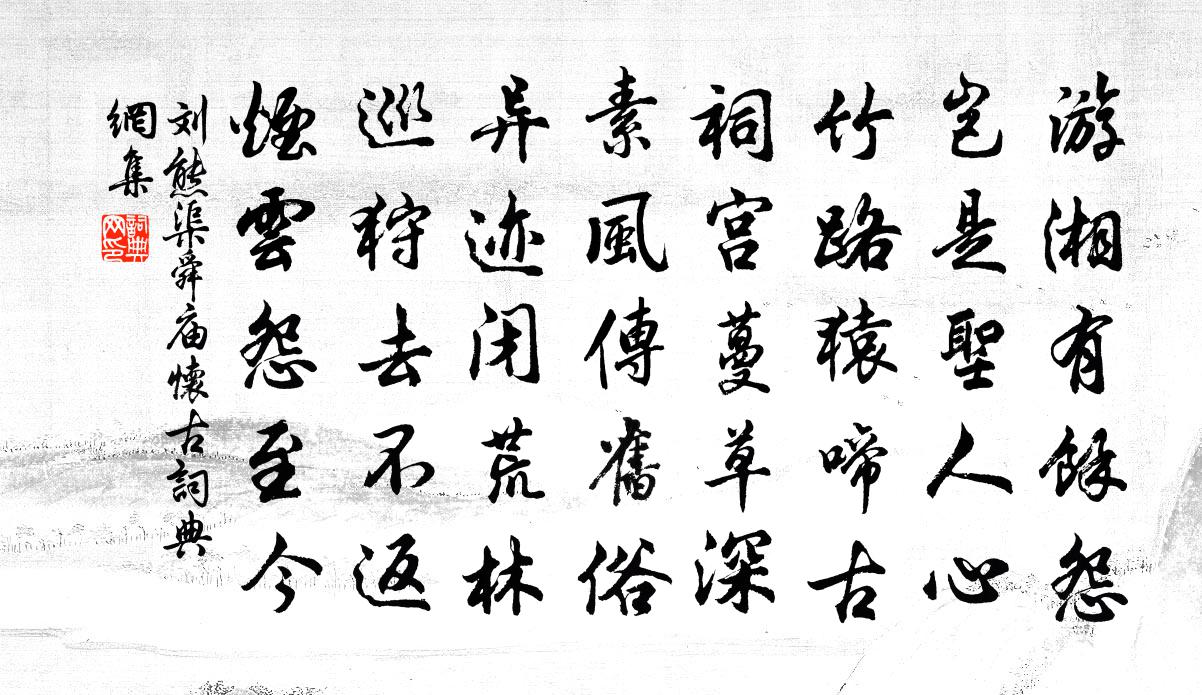 游湘有餘怨
岂是聖人心
竹路猿啼古
祠宫蔓草深
素風傳舊俗
异迹闭荒林
巡狩去不返
煙雲怨至今
刘熊渠舜庙懷古詞典
網集
詞典
网印